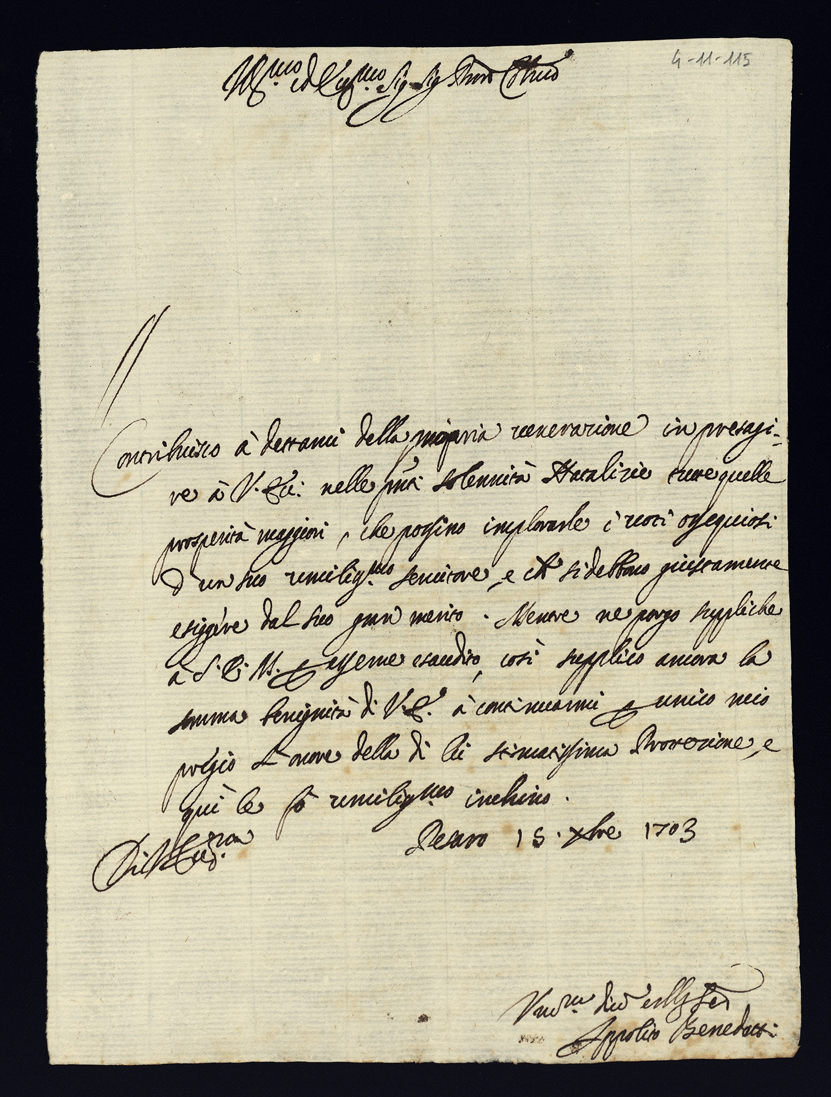 4-11-115
Ill.mo ed Ecc.mo Sig. Sig. Pron Col.mo
Contribuisco à dettami della mia propria venerazione in presagi-
re à V. Ecc. nelle pnti solennità Natalizie tutte quelle
prosperità maggiori, che possino implorarle i voti ossequiosi
d'un suo umiliss.mo servitore, e che si debbono giustamente
esiggere dal suo gran merito. Mentre ne porgo suppliche
à S. D. M. p esserne esaudito, così supplico ancora la
somma benignità di V. E. à continuarmi p unico mio
preggio l'onore della di lei stimatissima Protezione, e
quì le fò umiliss.mo inchino.
Pesaro 15 Xbre 1703
Di V. Ecc.za
Ippolito Benedetti